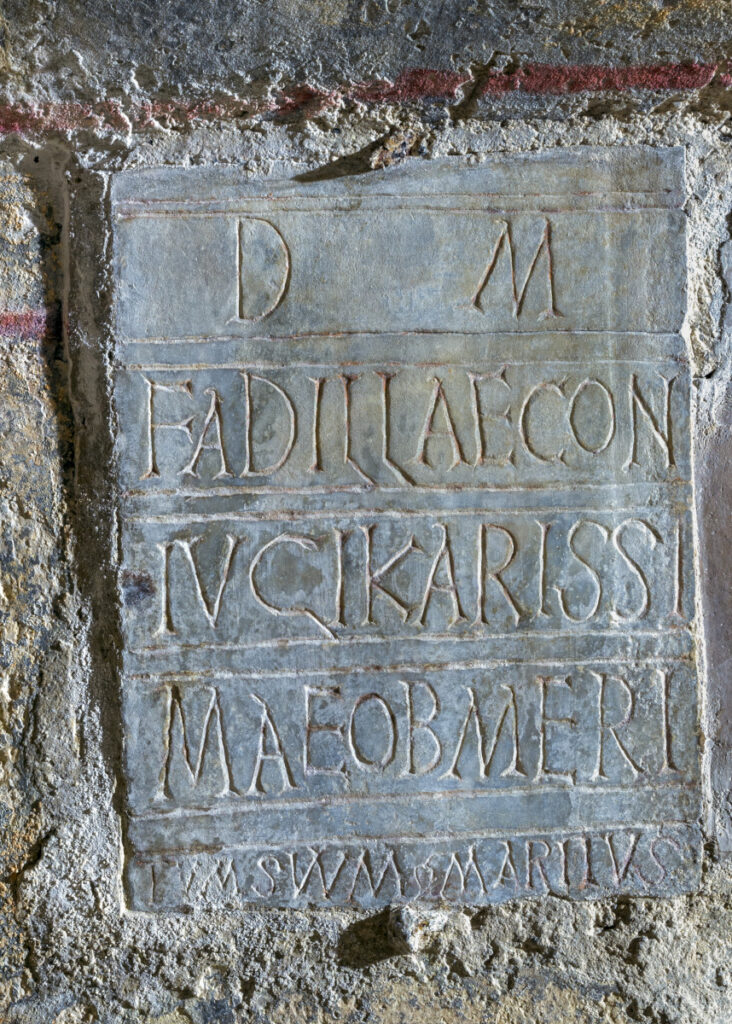 D M
FADILLAE CON
IVGI KARISSI
MAE OB MERI
TVM SVVM MARTIVS